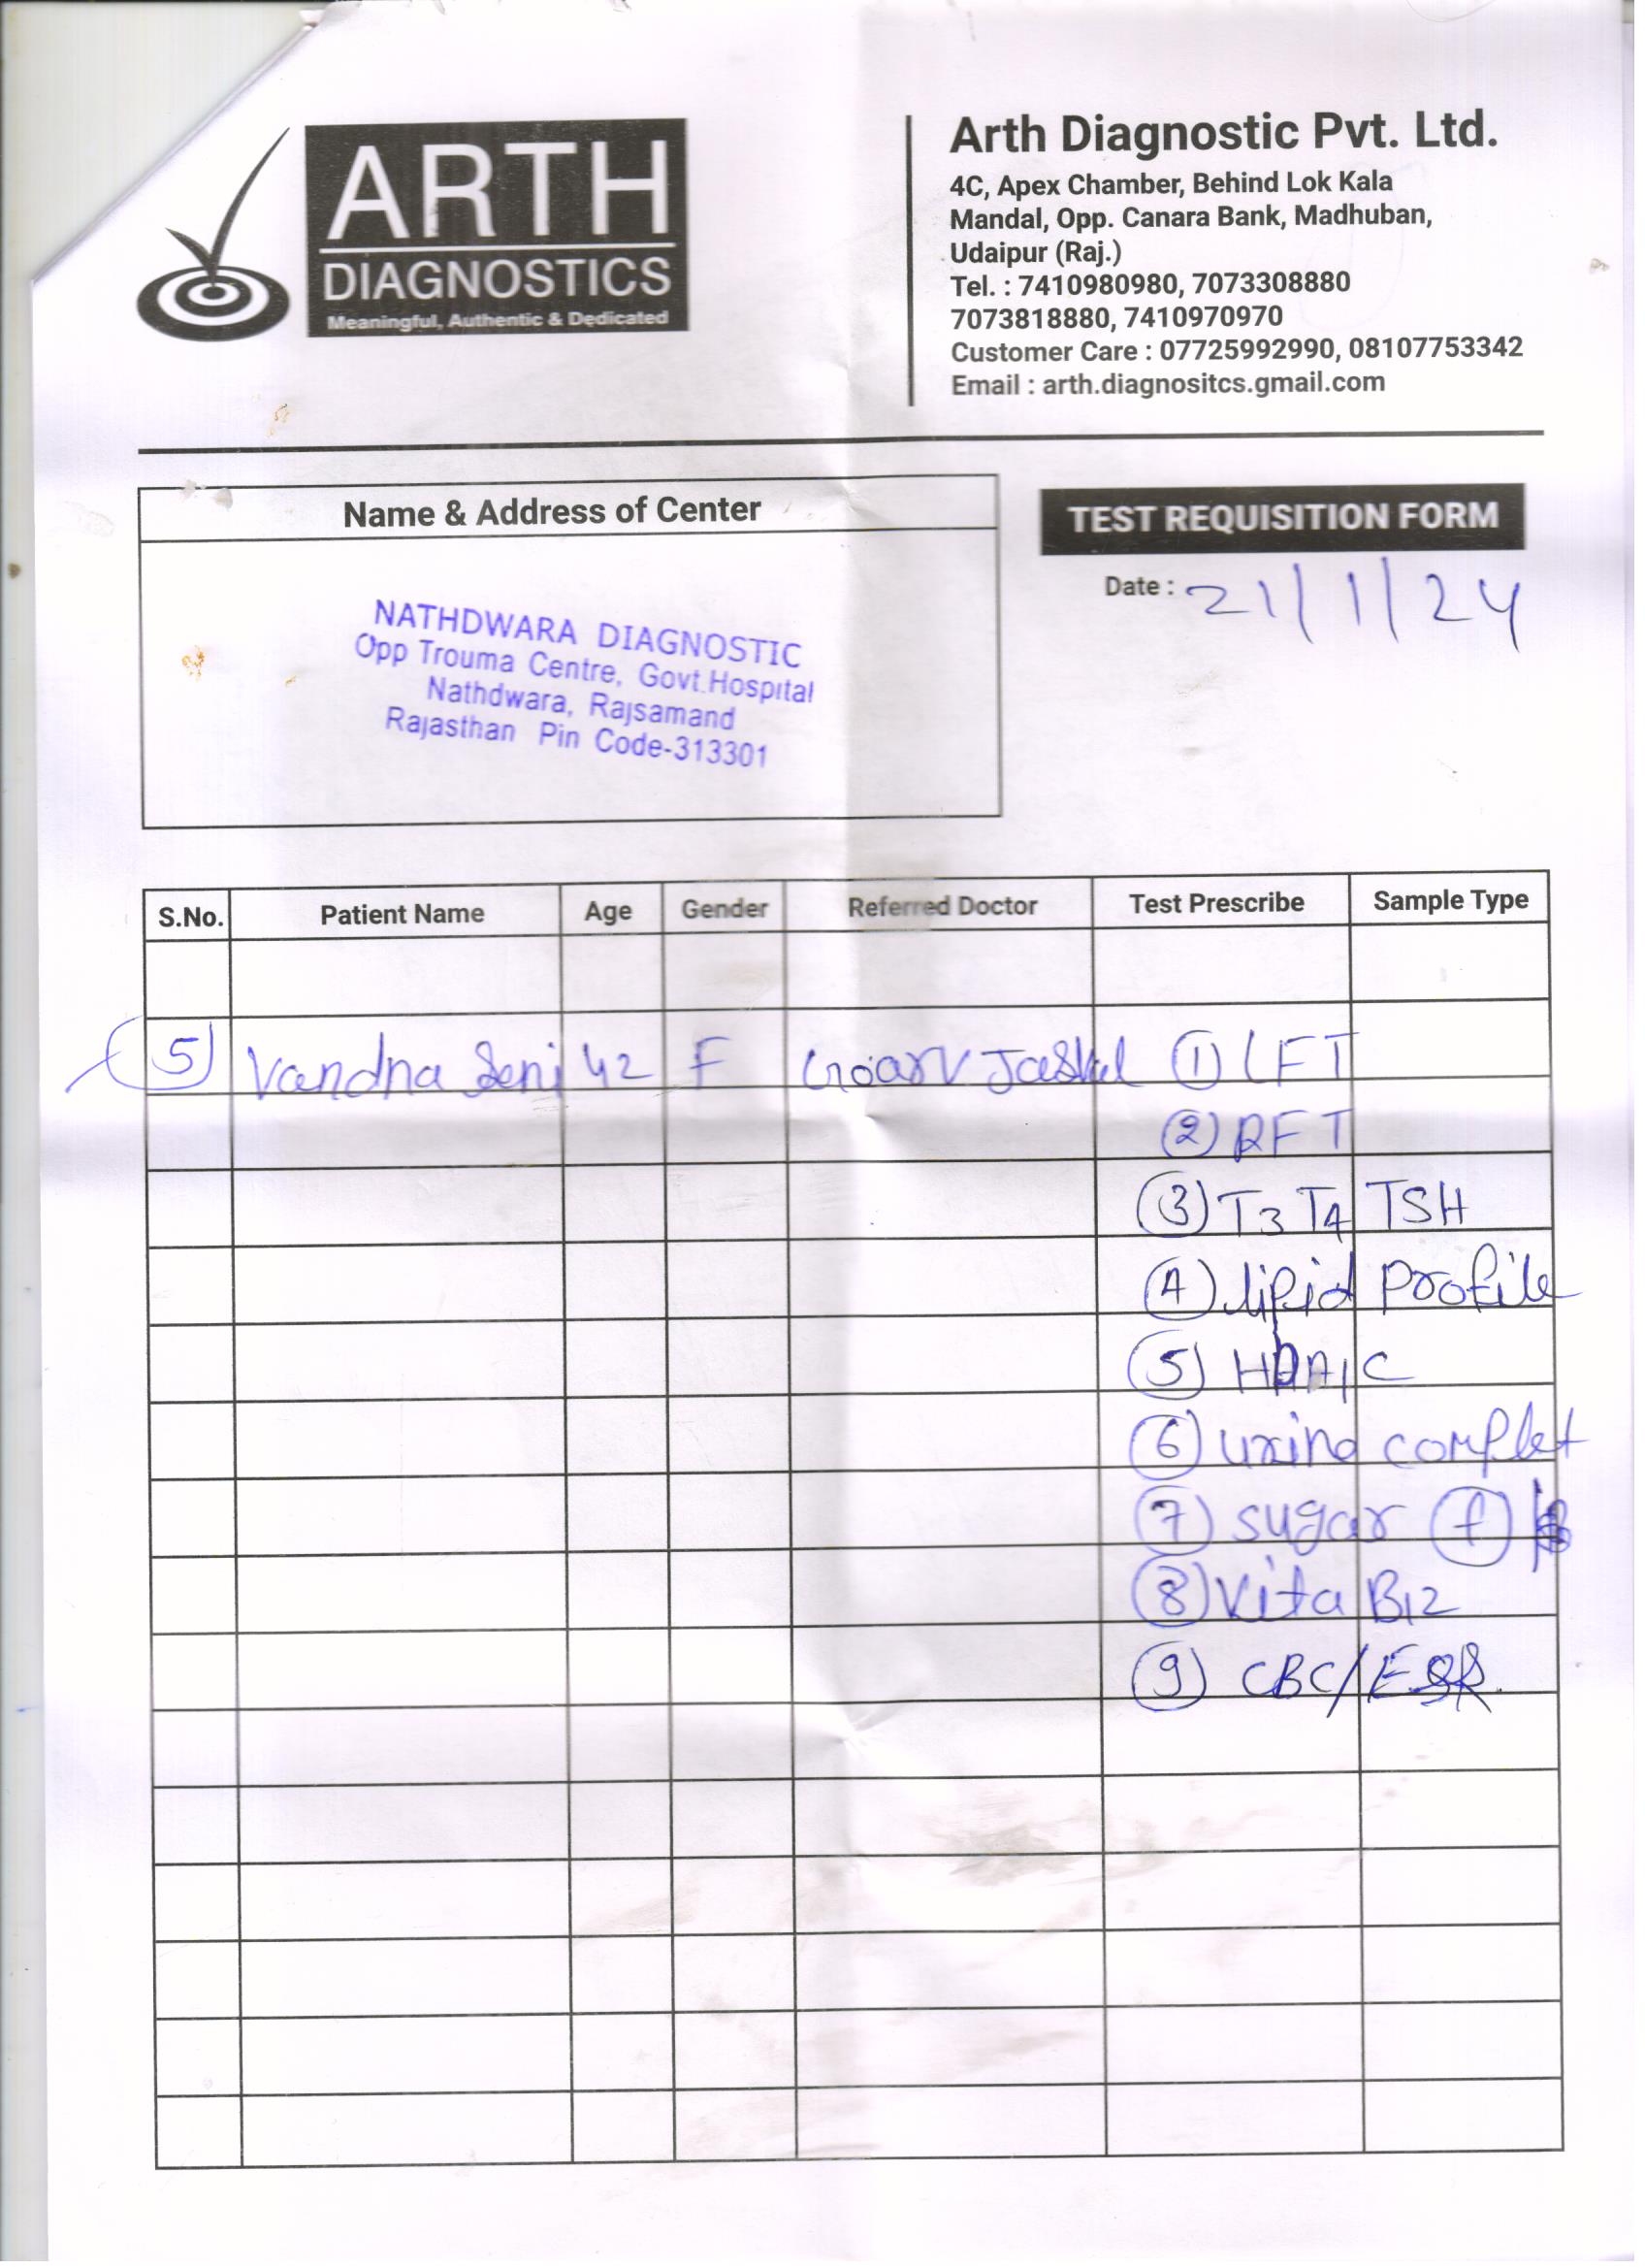 ARTH
DIAGNOSTICS
Meaningful, Authentic & Dedicated
Arth Diagnostic Pvt. Ltd.
4C, Apex Chamber, Behind Lok Kala
Mandal, Opp. Canara Bank, Madhuban,
Udaipur (Raj.)
Tel. : 7410980980, 7073308880
7073818880, 7410970970
Customer Care : 07725992990, 08107753342
Email : arth.diagnositcs.gmail.com
Name & Address of Center
NATHDWARA DIAGNOSTIC
Opp Trouma Centre, Govt.Hospital
Nathdwara, Rajsamand
Rajasthan Pin Code-313301
TEST REQUISITION FORM
Date : 21/1/24
S.No. Patient Name Age Gender Referred Doctor Test Prescribe Sample Type
5 Vandna 42 F 1 LFT
2 RFT
3 T3 T4 TSH
4 lipid profile
5 HbA1C
6 urine complet
7 sugar f
8 Vita B12
9 CBC/ESR